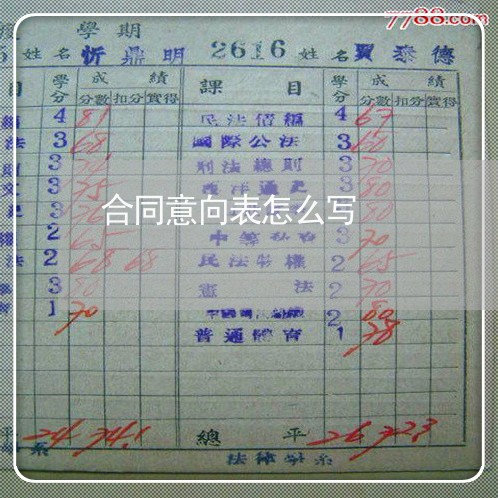 7788.com
學期
姓名 忻鼎明 2616 姓名 賈泰德
目 學分 成績 課目 學分 成績
分數 扣分 實得 分數 扣分 實得
4 81 民法債編 4 67
法 3 68 國際公法 3 60
3 刑法總則 3 70
3 75 西洋通史 3 80
合同意向表怎么写
3 3 80
2 65 3 70
法 2 68 68 民法物權 2 65
3 80 憲法 2 70
1 70 2 80
普通體育 1 78
平 24 74.1 總平 26 72.3
系 法律學系